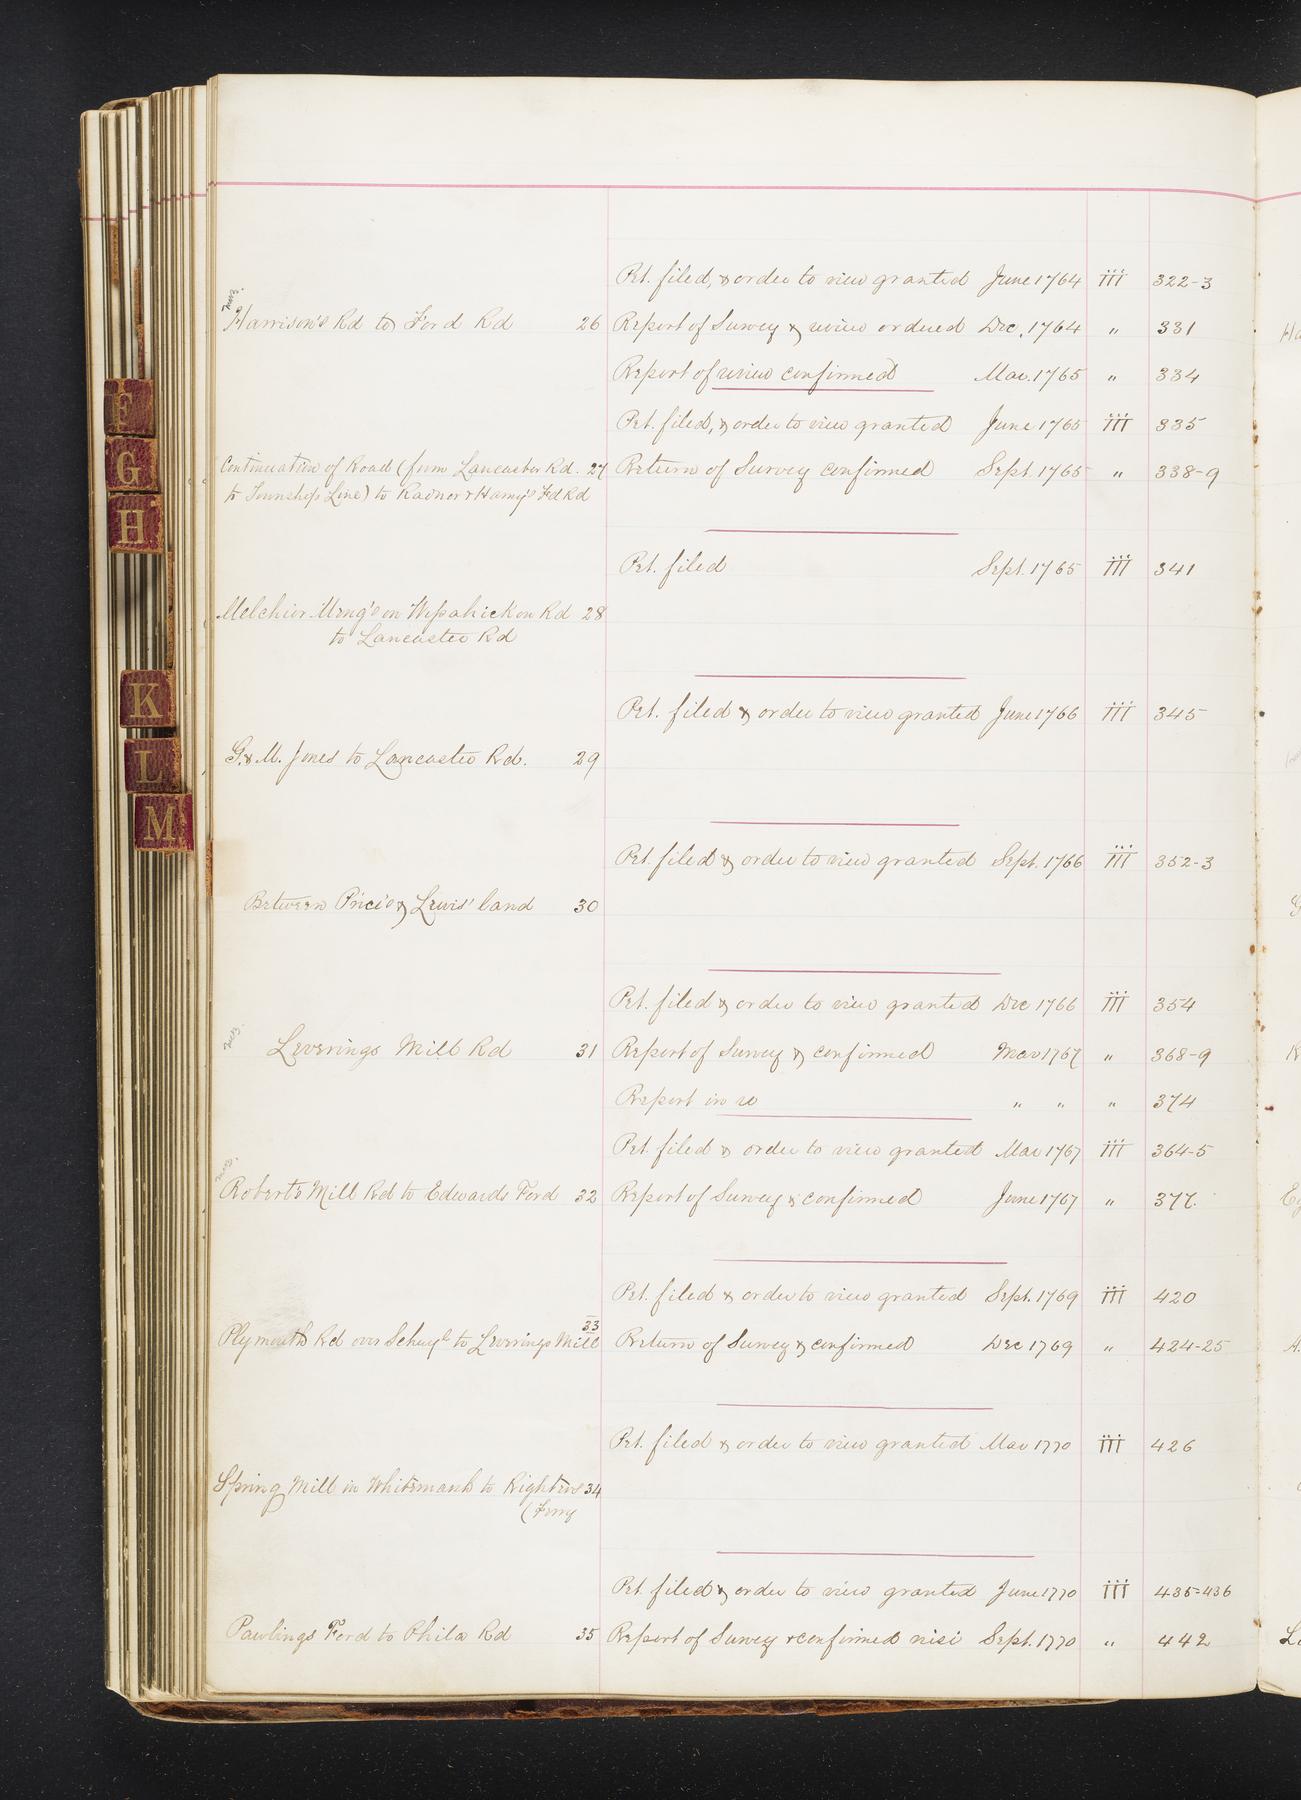 Pet. filed, & order to view granted June 1764 iii 322-3
Harrison's Rd to Ford Rd 26 Report of Survey & review ordered Dec. 1764 " 331
Report of review confirmed Mar. 1765 " 334
Pet. filed, & order to view granted June 1765 iii 335
Continuation of Road (from Lancaster Rd. 27 Return of Survey confirmed Sept. 1765 " 338-9
to Township Line) to Radnor & Ham'g's Fd Rd
Pet. filed Sept. 1765 iii 341
Melchior Meng's on Wissahickon Rd 28
to Lancaster Rd
Pet. filed & order to view granted June 1766 iii 345
G. & M. Jones to Lancaster Rd. 29
Pet. filed & order to view granted Sept. 1766 iii 352-3
Between Price's & Lewis' land 30
Pet. filed & order to view granted Dec 1766 iii 354
Leverings Mill Rd 31 Report of Survey & confirmed Mar 1767 " 368-9
Report in re " " " 374
Pet. filed & order to view granted Mar 1767 iii 364-5
Roberts Mill Rd to Edwards Ford 32 Report of Survey & confirmed June 1767 " 377.
Pet. filed & order to view granted Sept. 1769 iii 420
33
Plymouth Rd over Schuyl to Leverings Mill Return of Survey & confirmed Dec 1769 " 424-25
Pet. filed & order to view granted Mar 1770 iii 426
Spring Mill in Whitemarsh to Righters 34
(Ferry
Pet. filed & order to view granted June 1770 iii 435=436
Pawlings Ford to Phila Rd 35 Report of Survey & confirmed nisi Sept. 1770 " 442
F
G
H
K
L
M